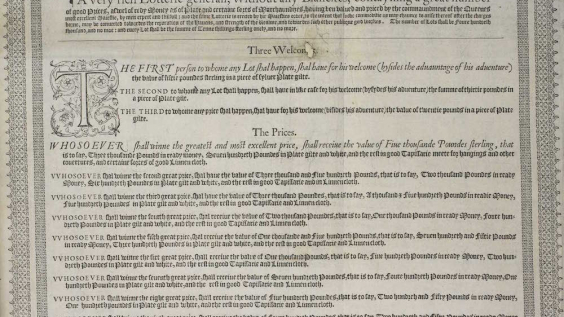 A very rich Lotterie generall, without any Blanckes, contayning a great number
of good Prices, aswel of redy Money as of Plate, and certaine sorts of
Three Welcoms.
THE FIRST person to whome any Lot shall happen, shall haue for his welcome (bysides the aduauntage of his aduenture)
the value of fiftie poundes sterling in a piece of syluer plate gilte.
THE SECOND to whome any Lot shall happen, shall haue in like case for his welcome, bysides his aduenture, the summe of thirtie poundes in
a piece of Plate gilte.
THE THIRD to whome any price shall happen, shall haue for his welcome, bysides his aduenture, the value of twentie pounds in a piece of Plate
gilte.
The Prices.
WHOSOEVER shall winne the greatest and most excellent price, shall receiue the value of Fiue thousande Poundes sterling, that
is to say, Three thousande Poundes in ready money, Seuen hundreth Poundes in Plate gilte and white, and the rest in good Tapissarie meete for hangings and other
couertures, and certaine sortes of good Linnen cloth.
VVHOSOEVER shall winne the second great price, shall haue the value of Three thousand and Fiue hundreth Poundes, that is to say, Two thousand Poundes in ready
Money, Six hundreth Poundes in Plate gilt and white, and the rest in good Tapissarie and Linnencloth.
VVHOSOEVER shall winne the third great price, shall haue the value of Three thousand Poundes, that is to say, A thousand &amp; Fiue hundreth Poundes in ready Money,
Fiue hundreth Poundes in Plate gilt and white, and the rest in good Tapissarie and Linnencloth.
VVHOSOEVER shall winne the fourth great price, shall receiue the value of Two thousand Poundes, that is to say, One thousand Poundes in ready Money, Foure hun-
dreth Poundes in Plate gilt and white, and the rest in good Tapissarie and Linnencloth.
VVHOSOEVER shall winne the fifth great price, shall receiue the value of One thousande and Fiue hundreth Poundes, that is to say, Seuen hundreth and Fiftie Poundes
in ready Money, Three hundreth Poundes in Plate gilt and white, and the rest in good Tapissarie and Linnencloth.
VVHOSOEVER shall winne the sixt great price, shall receiue the value of One thousand Poundes, that is to say, Fiue hundreth Poundes in ready Money, Two hun-
dreth Poundes in Plate gilt and white, and the rest in good Tapissarie and Linnencloth.
VVHOSOEVER shall winne the seuenth great price, shall receiue the value of Seuen hundreth Poundes, that is to say, Foure hundreth Poundes in ready Money, One
hundreth Poundes in Plate gilt and white, and the rest in good Tapissarie and Linnencloth.
VVHOSOEVER shall winne the eight great price, shall receiue the value of Fiue hundreth Poundes, that is to say, Two hundreth and Fifty Poundes in ready Money,
One hundreth Poundes in Plate gilt and white, and the rest in good Tapissarie and Linnencloth.